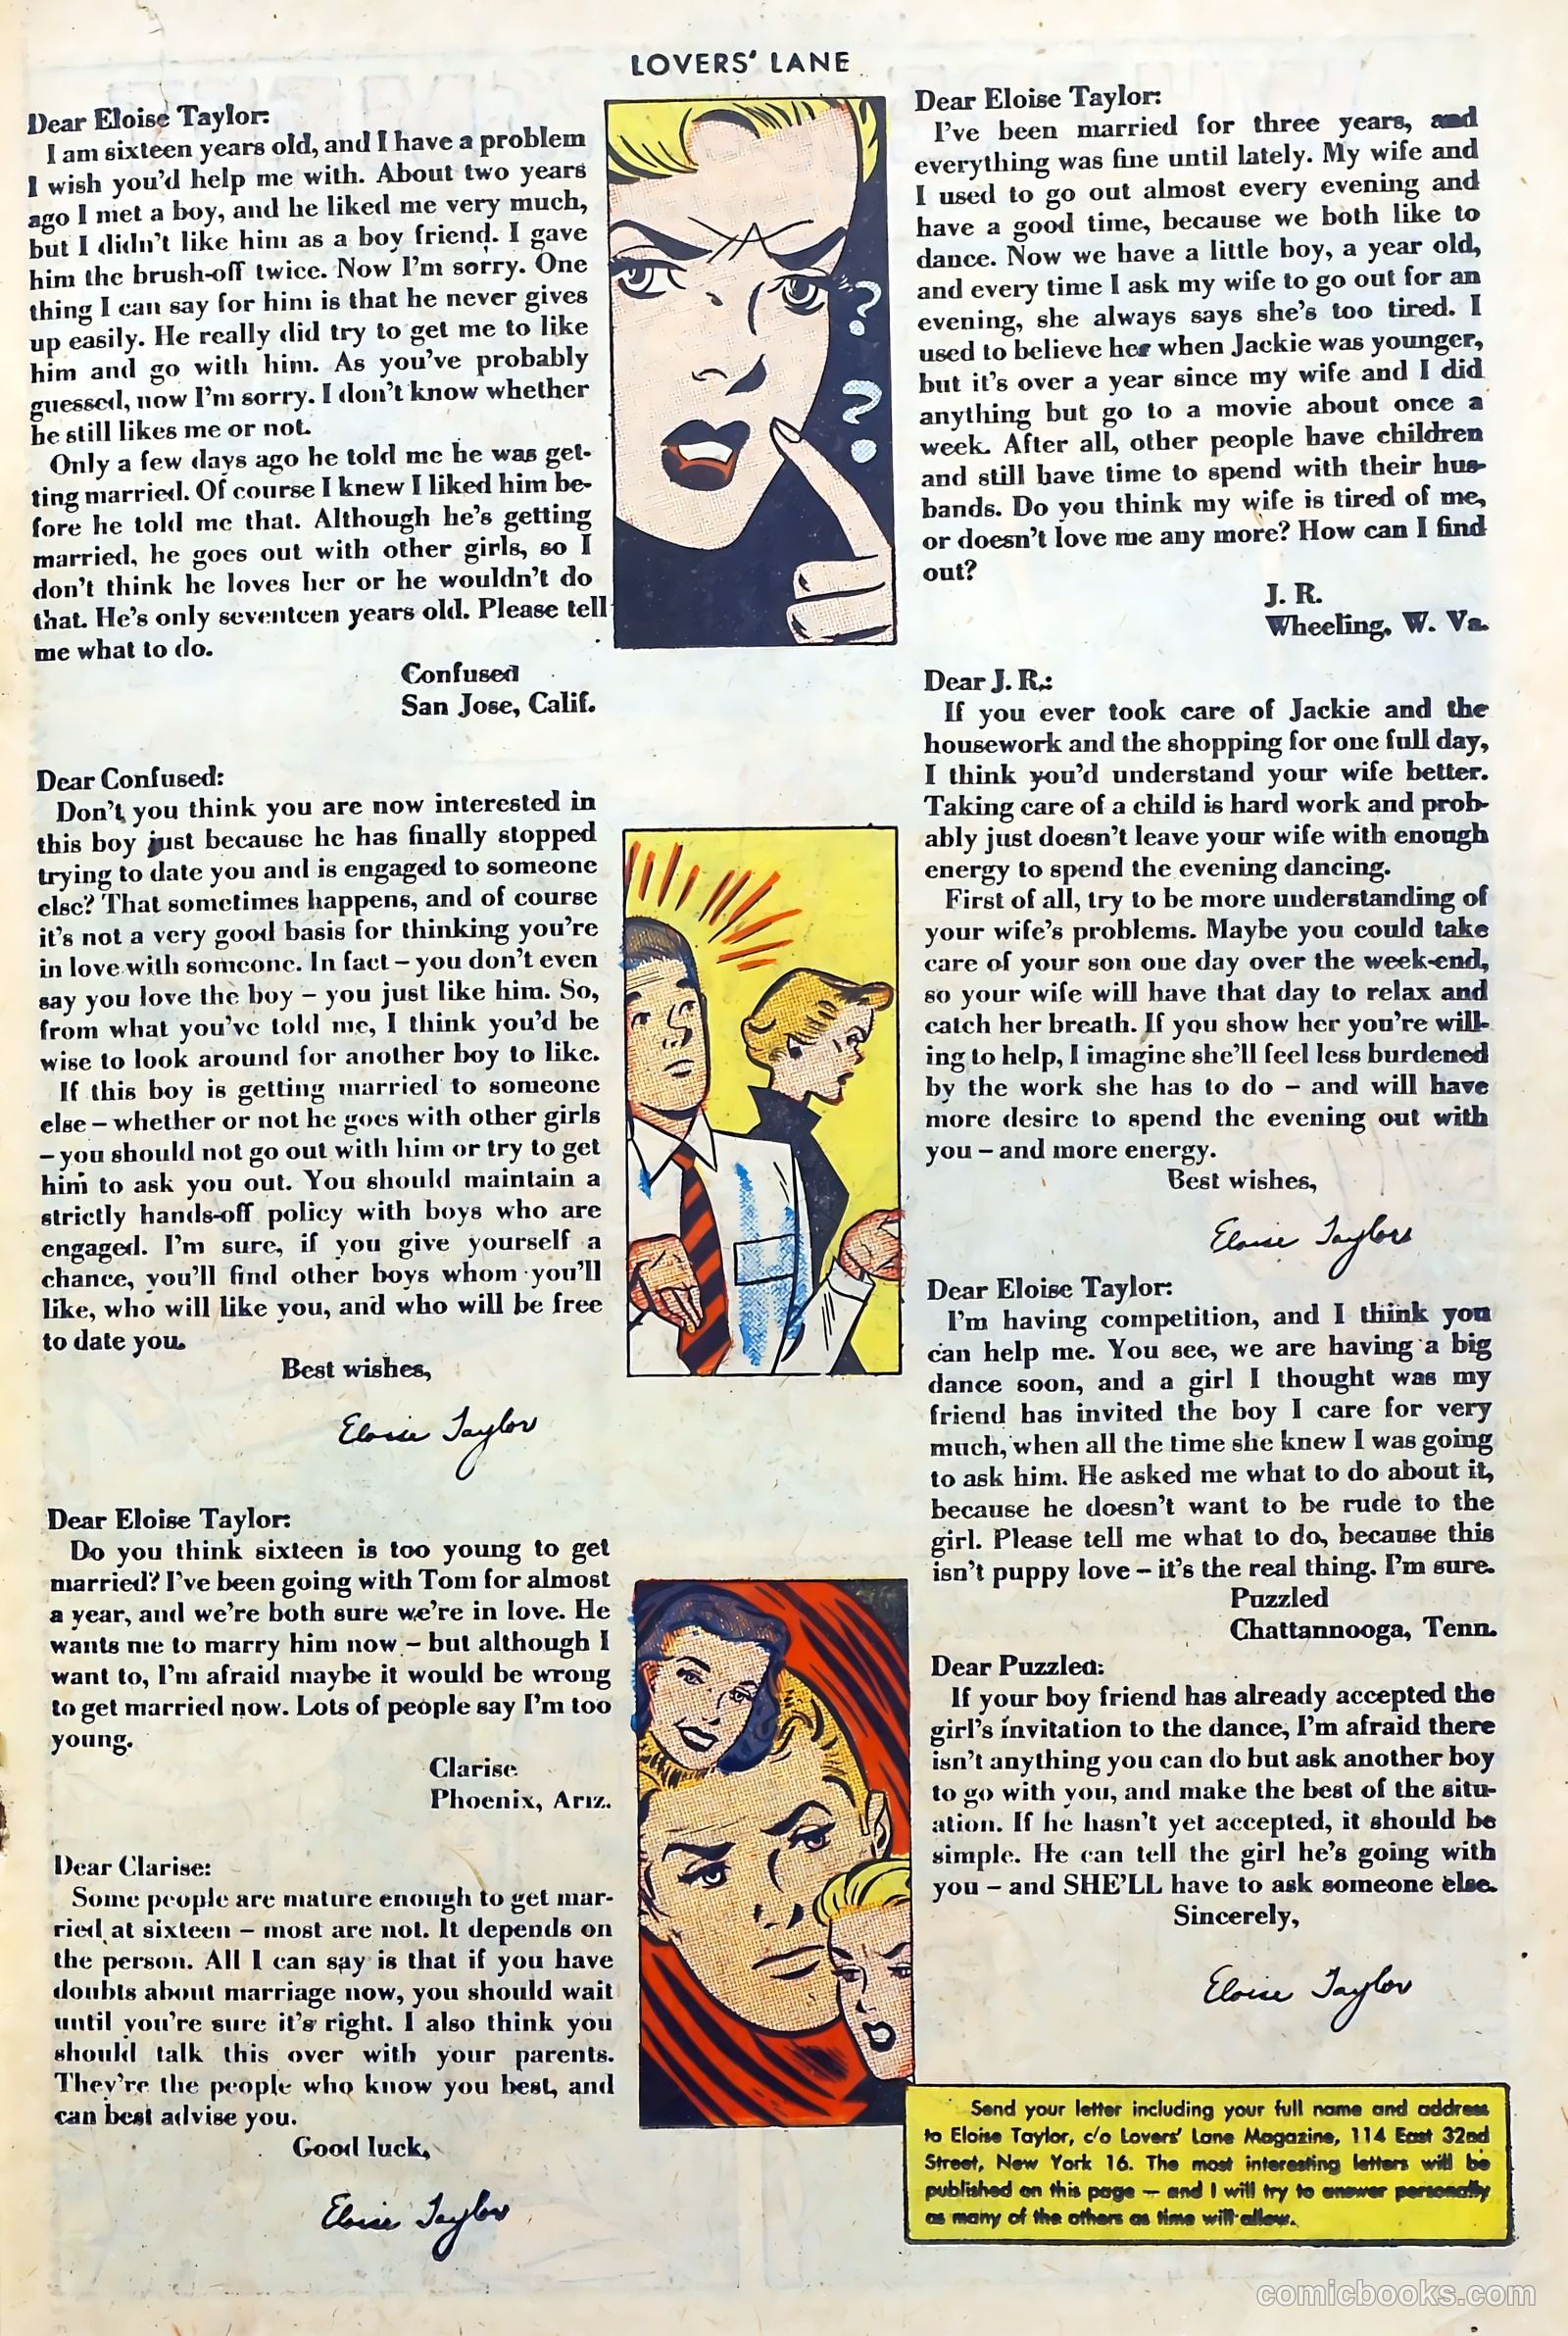 LOVERS' LANE
Dear Eloise Taylor:
I am sixteen years old, and I have a problem
I wish you'd help me with. About two years
ago I met a boy, and he liked me very much,
but I didn't like him as a boy friend. I gave
him the brush-off twice. Now I'm sorry. One
thing I can say for him is that he never gives
up easily. He really did try to get me to like
him and go with him. As you've probably
guessed, now I'm sorry. I don't know whether
he still likes me or not.
Only a few days ago he told me he was get-
ting married. Of course I knew I liked him be-
fore he told me that. Although he's getting
married, he goes out with other girls, so I
don't think he loves her or he wouldn't do
that. He's only seventeen years old. Please tell
me what to do.
Confused
San Jose, Calif.
Dear Confused:
Don't you think you are now interested in
this boy just because he has finally stopped
trying to date you and is engaged to someone
else? That sometimes happens, and of course
it's not a very good basis for thinking you're
in love with someone. In fact – you don't even
say you love the boy – you just like him. So,
from what you've told me, I think you'd be
wise to look around for another boy to like.
If this boy is getting married to someone
else – whether or not he goes with other girls
– you should not go out with him or try to get
him to ask you out. You should maintain a
strictly hands-off policy with boys who are
engaged. I'm sure, if you give yourself a
chance, you'll find other boys whom you'll
like, who will like you, and who will be free
to date you.
Best wishes,
Eloise Taylor
Dear Eloise Taylor:
Do you think sixteen is too young to get
married? I've been going with Tom for almost
a year, and we're both sure we're in love. He
wants me to marry him now – but although I
want to, I'm afraid maybe it would be wrong
to get married now. Lots of people say I'm too
young.
Clarise
Phoenix, Ariz.
Dear Clarise:
Some people are mature enough to get mar-
ried at sixteen – most are not. It depends on
the person. All I can say is that if you have
doubts about marriage now, you should wait
until you're sure it's right. I also think you
should talk this over with your parents.
They're the people who know you best, and
can best advise you.
Good luck,
Eloise Taylor
? ?
Dear Eloise Taylor:
I've been married for three years, and
everything was fine until lately. My wife and
I used to go out almost every evening and
have a good time, because we both like to
dance. Now we have a little boy, a year old,
and every time I ask my wife to go out for an
evening, she always says she's too tired. I
used to believe her when Jackie was younger,
but it's over a year since my wife and I did
anything but go to a movie about once a
week. After all, other people have children
and still have time to spend with their hus-
bands. Do you think my wife is tired of me,
or doesn't love me any more? How can I find
out?
J. R.
Wheeling, W. Va.
Dear J. R.:
If you ever took care of Jackie and the
housework and the shopping for one full day,
I think you'd understand your wife better.
Taking care of a child is hard work and prob-
ably just doesn't leave your wife with enough
energy to spend the evening dancing.
First of all, try to be more understanding of
your wife's problems. Maybe you could take
care of your son one day over the week-end,
so your wife will have that day to relax and
catch her breath. If you show her you're will-
ing to help, I imagine she'll feel less burdened
by the work she has to do – and will have
more desire to spend the evening out with
you – and more energy.
Best wishes,
Eloise Taylor
Dear Eloise Taylor:
I'm having competition, and I think you
can help me. You see, we are having a big
dance soon, and a girl I thought was my
friend has invited the boy I care for very
much, when all the time she knew I was going
to ask him. He asked me what to do about it,
because he doesn't want to be rude to the
girl. Please tell me what to do, because this
isn't puppy love – it's the real thing. I'm sure.
Puzzled
Chattannooga, Tenn.
Dear Puzzled:
If your boy friend has already accepted the
girl's invitation to the dance, I'm afraid there
isn't anything you can do but ask another boy
to go with you, and make the best of the situ-
ation. If he hasn't yet accepted, it should be
simple. He can tell the girl he's going with
you – and SHE'LL have to ask someone else.
Sincerely,
Eloise Taylor
Send your letter including your full name and address
to Eloise Taylor, c/o Lovers' Lane Magazine, 114 East 32nd
Street, New York 16. The most interesting letters will be
published on this page — and I will try to answer personally
as many of the others as time will allow.
comicbooks.com